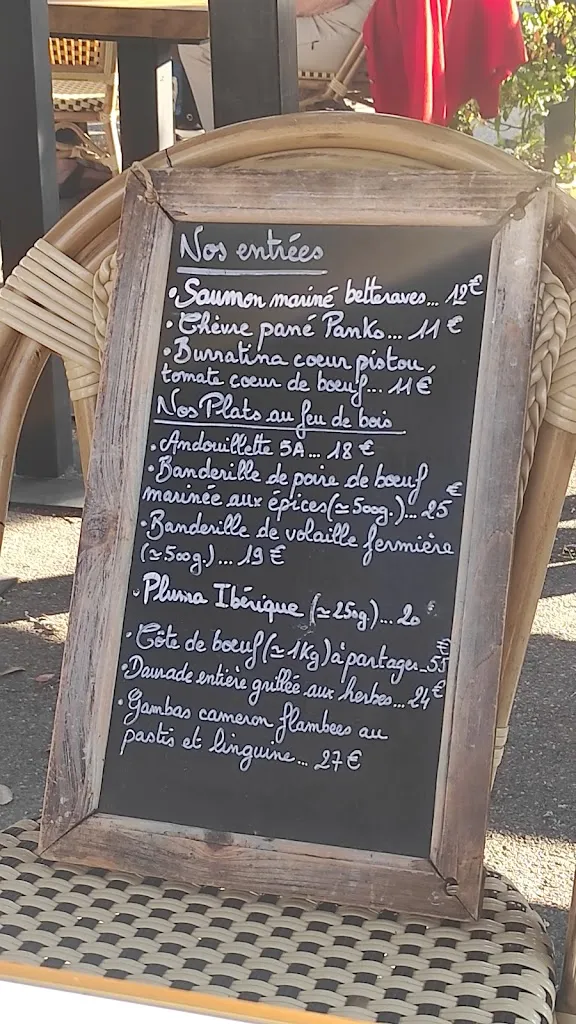 Nos entrées
• Saumon mariné betteraves... 12€
• Chèvre pané Panko... 11€
• Burratina coeur pistou,
tomate coeur de boeuf... 11€
Nos Plats au feu de bois
• Andouillette 5A... 18€
• Banderille de poire de boeuf
marinée aux épices (≃500g.)... 25€
• Banderille de volaille fermière
(≃500g.)... 19€
• Pluma Ibérique (≃250g)... 20€
• Côte de boeuf (≃1Kg) à partager_55€
• Daurade entière grillée aux herbes... 24€
• Gambas cameron flambees au
pastis et linguine... 27€